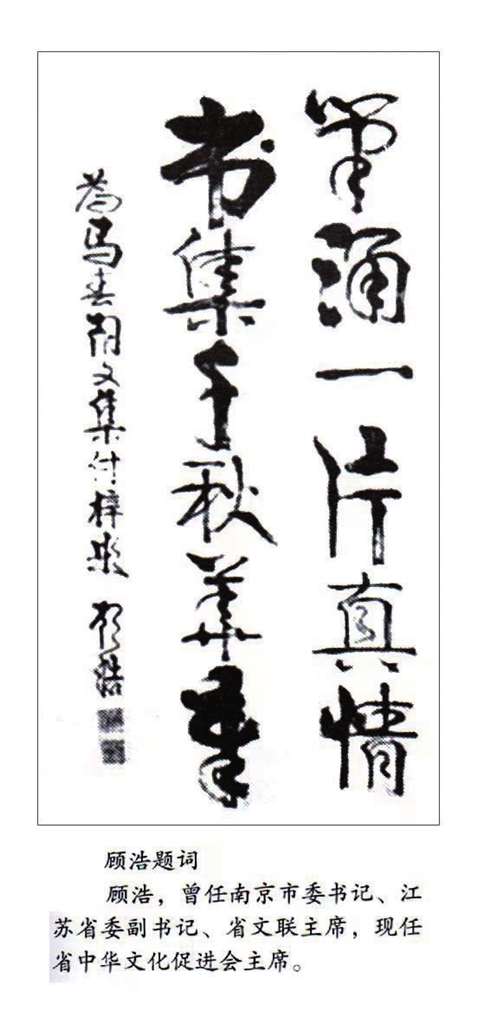 笔涌一片真情
书集千秋华章
为马春阳文集付梓 顾浩
顾浩题词
顾浩，曾任南京市委书记、江
苏省委副书记、省文联主席，现任
省中华文化促进会主席。